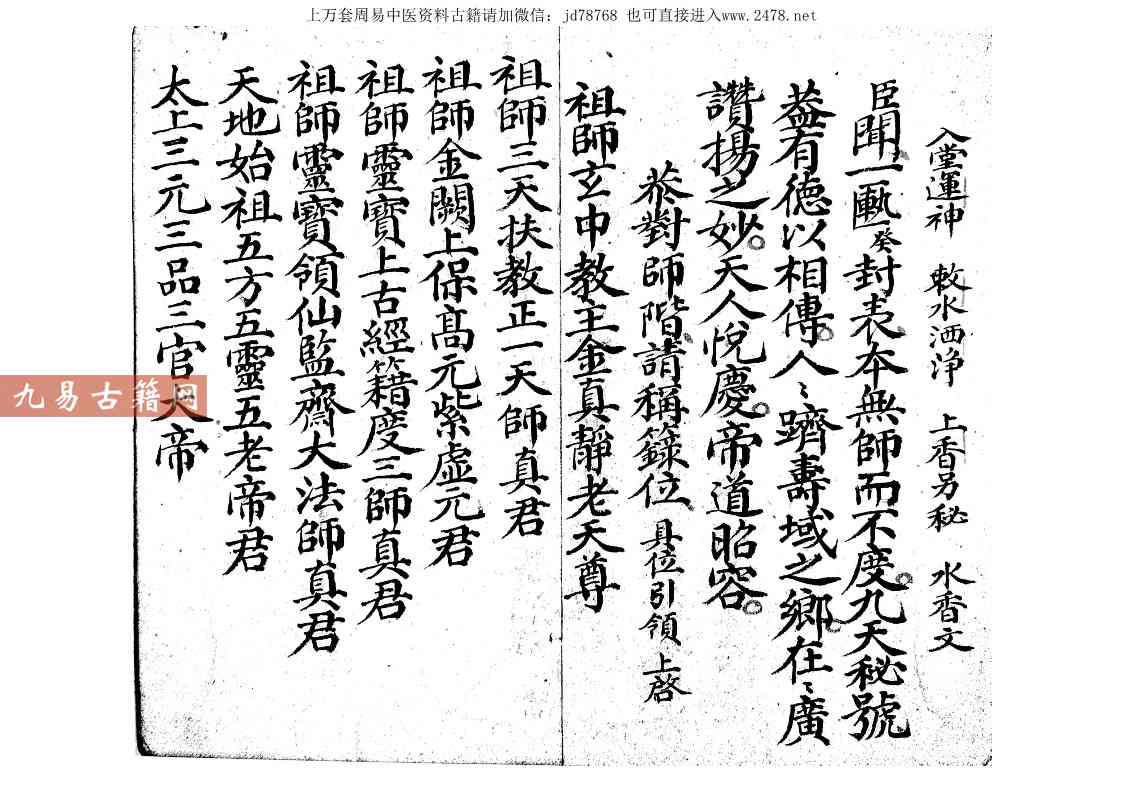 上万套周易中医资料古籍请加微信：jd78768 也可直接进入www.2478.net
入堂運神 敕水洒浄 上香另秘 水香文
臣聞一炁癸封表本無師而不度。九天秘號
葢有德以相傳。人〻躋壽域之鄉。在〻廣
讚揚之妙。天人悅慶。帝道昭容。
恭對師階請稱籙位 具位引領 上啓
祖師玄中教主金真靜老天尊
祖師三天扶教正一天師真君
祖師金闕上保高元紫虛元君
祖師靈寶上古經籍度三師真君
祖師靈寶領仙監齋大法師真君
天地始祖五方五靈五老帝君
太上三元三品三官大帝
九易古籍网